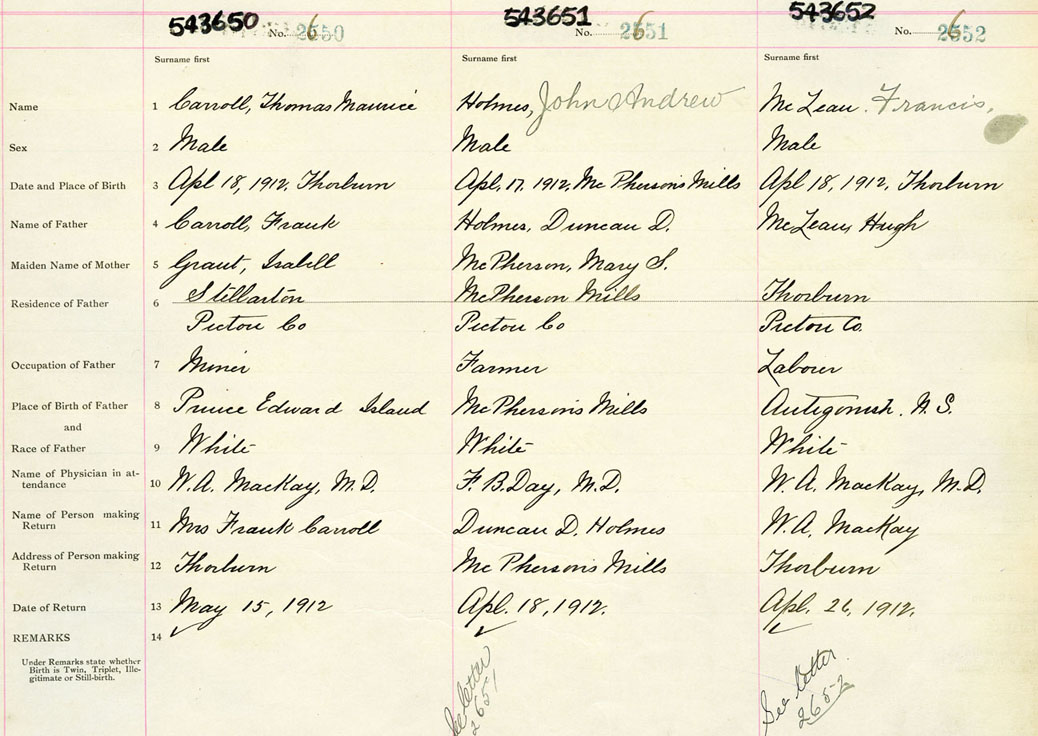 543650 543651 543652
No. 2650 No. 2651 No. 2652
Surname first Surname first Surname first
Name 1 Carroll, Thomas Maurice Holmes, John Andrew McLean. Francis,
Sex 2 Male Male Male
Date and Place of Birth 3 Apl 18, 1912, Thorburn Apl. 17, 1912, McPherson's Mills Apl 18, 1912, Thorburn
Name of Father 4 Carroll, Frank Holmes, Duncan D. McLean, Hugh
Maiden Name of Mother 5 Grant, Isabell McPherson, Mary S.
Residence of Father 6 Stellarton McPherson Mills Thorburn
Pictou Co Pictou Co Pictou Co.
Occupation of Father 7 Miner Farmer Labourer
Place of Birth of Father 8 Prince Edward Island McPherson's Mills Antigonish. N.S.
and
Race of Father 9 White White White
Name of Physician in at-
tendance 10 W.A. MacKay, M.D. F.B. Day, M.D. W.A. MacKay, M.D.
Name of Person making
Return 11 Mrs Frank Carroll Duncan D. Holmes W.A. MacKay
Address of Person making
Return 12 Thorburn McPherson's Mills Thorburn
Date of Return 13 May 15, 1912 Apl. 18, 1912. Apl. 26, 1912.
REMARKS 14
Under Remarks state whether
Birth is Twin, Triplet, Ille-
gitimate or Still-birth.
See letter
2651
See letter
2652